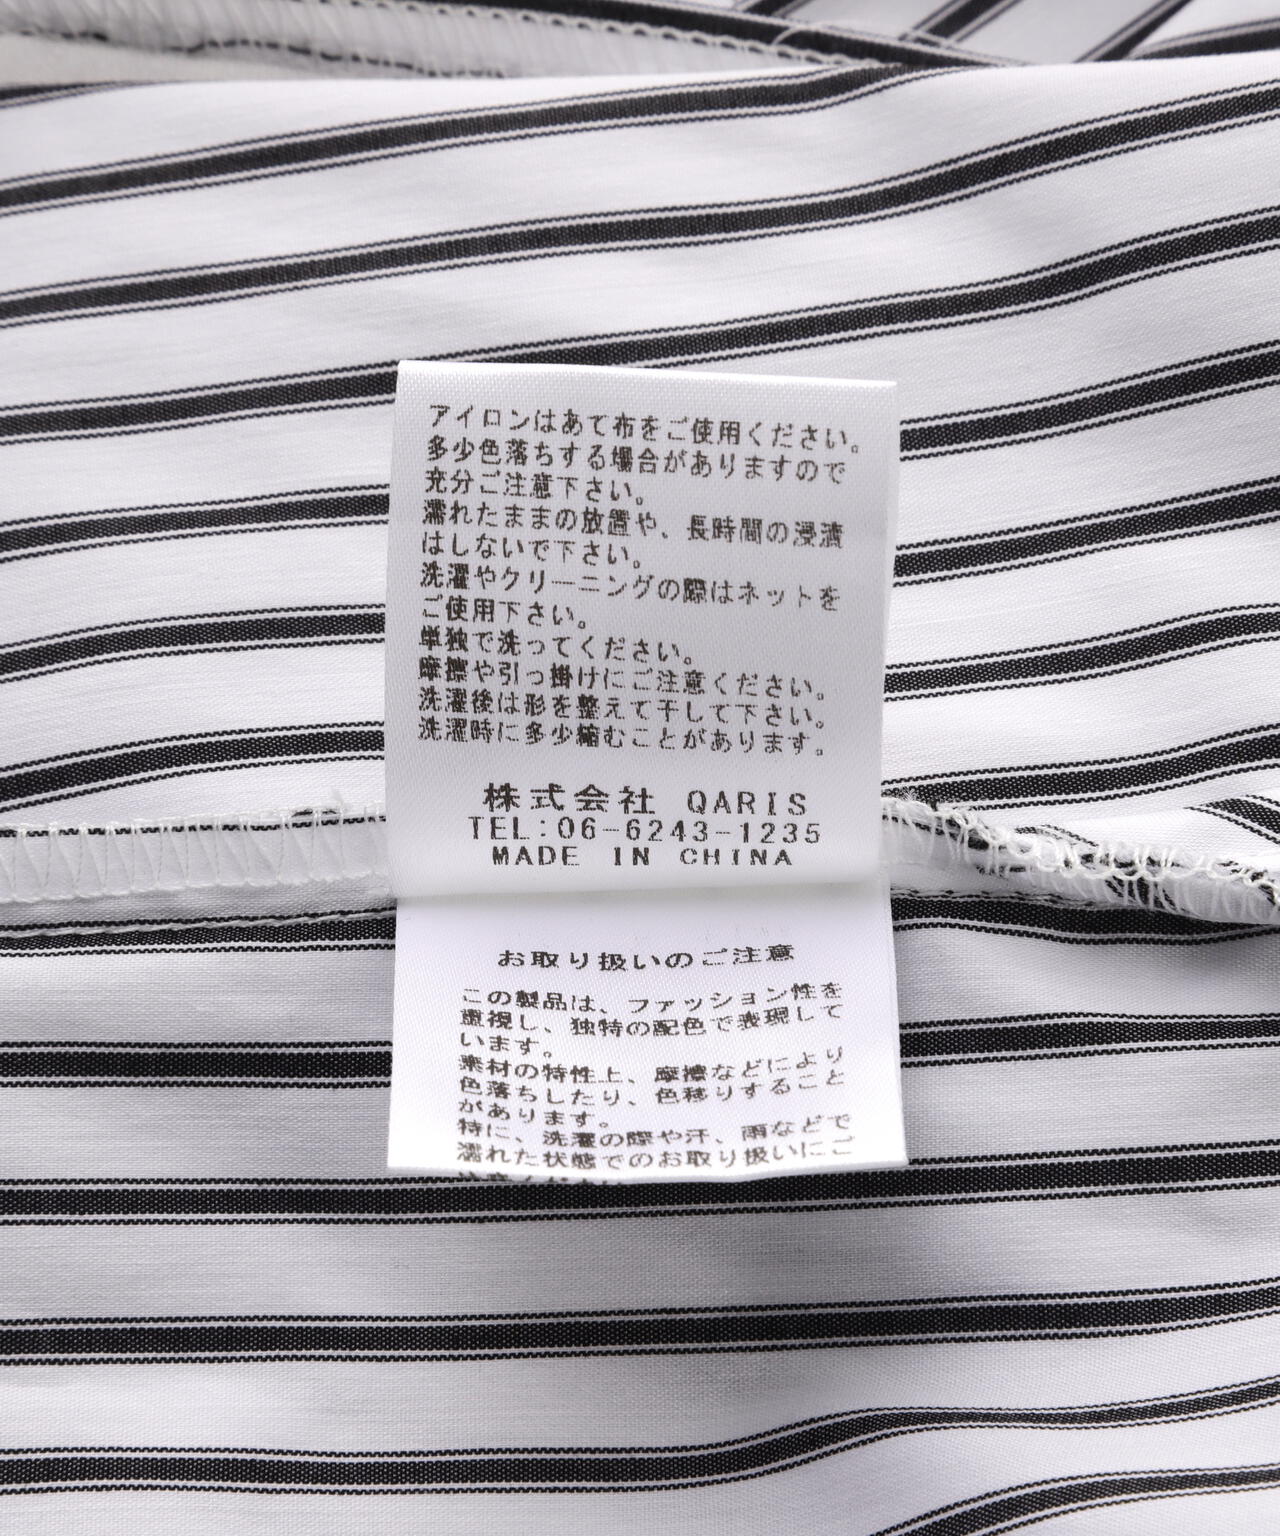 アイロンはあて布をご使用ください。
多少色落ちする場合がありますので
充分ご注意下さい。
濡れたままの放置や、長時間の浸漬
はしないで下さい。
洗濯やクリーニングの際はネットを
ご使用下さい。
単独で洗ってください。
摩擦や引っ掛けにご注意ください。
洗濯後は形を整えて干して下さい。
洗濯時に多少縮むことがあります。
株式会社 QARIS
TEL:06-6243-1235
MADE IN CHINA
お取り扱いのご注意
この製品は、ファッション性を
重視し、独特の配色で表現して
います。
素材の特性上、摩擦などにより
色落ちしたり、色移りすること
があります。
特に、洗濯の際や汗、雨などで
濡れた状態でのお取り扱いにご